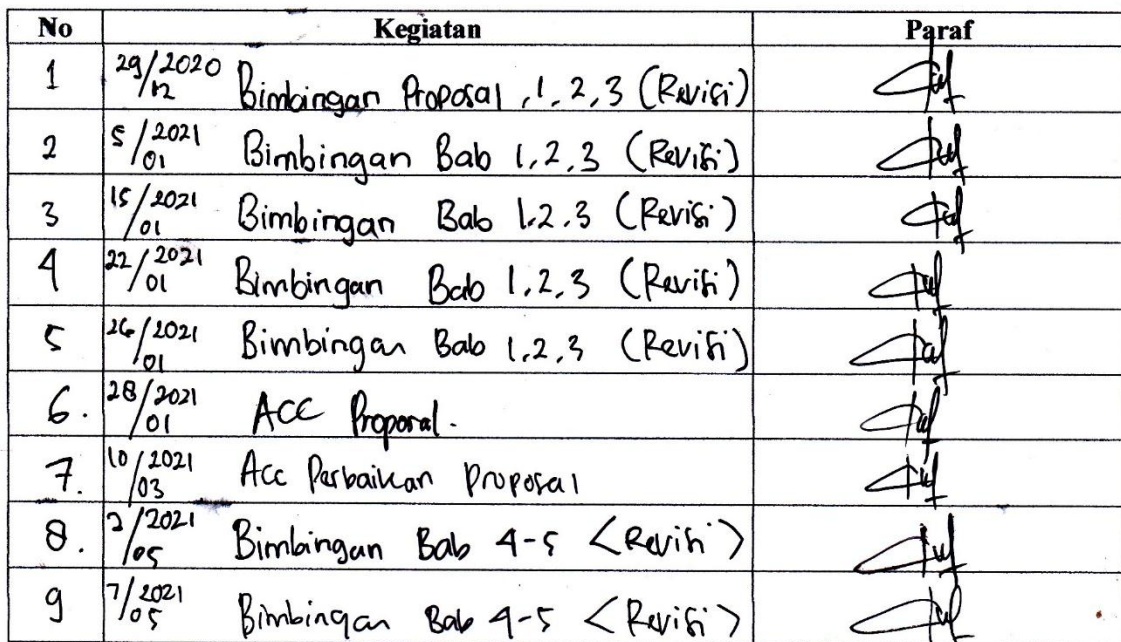 No Kegiatan Paraf
1 29/12 2020 Bimbingan Proposal, 1, 2, 3 (Revisi)
2 5/01 2021 Bimbingan Bab 1, 2, 3 (Revisi)
3 15/01 2021 Bimbingan Bab 1.2.3 (Revisi)
4 22/01 2021 Bimbingan Bab 1.2.3 (Revisi)
5 26/01 2021 Bimbingan Bab 1.2.3 (Revisi)
6. 28/01 2021 ACC Proposal.
7. 10/03 2021 Acc Perbaikan Proposal
8. 2/05 2021 Bimbingan Bab 4-5 <Revisi>
9 7/05 2021 Bimbingan Bab 4-5 <Revisi>